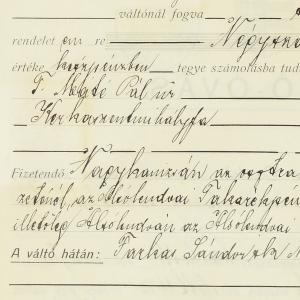 váltónál fogva
rendelet em re Négyszá
értéke készpénzben tegye számolásba tud
T. Mágté Pál úr
Kerkaszentmihályfa
Fizetendő Nagykanizsán az osztrá
az Alsólendvai Takarékpén
illetőleg Alsólendván az Alsólendvai
A váltó hátán: Farkas Sándor